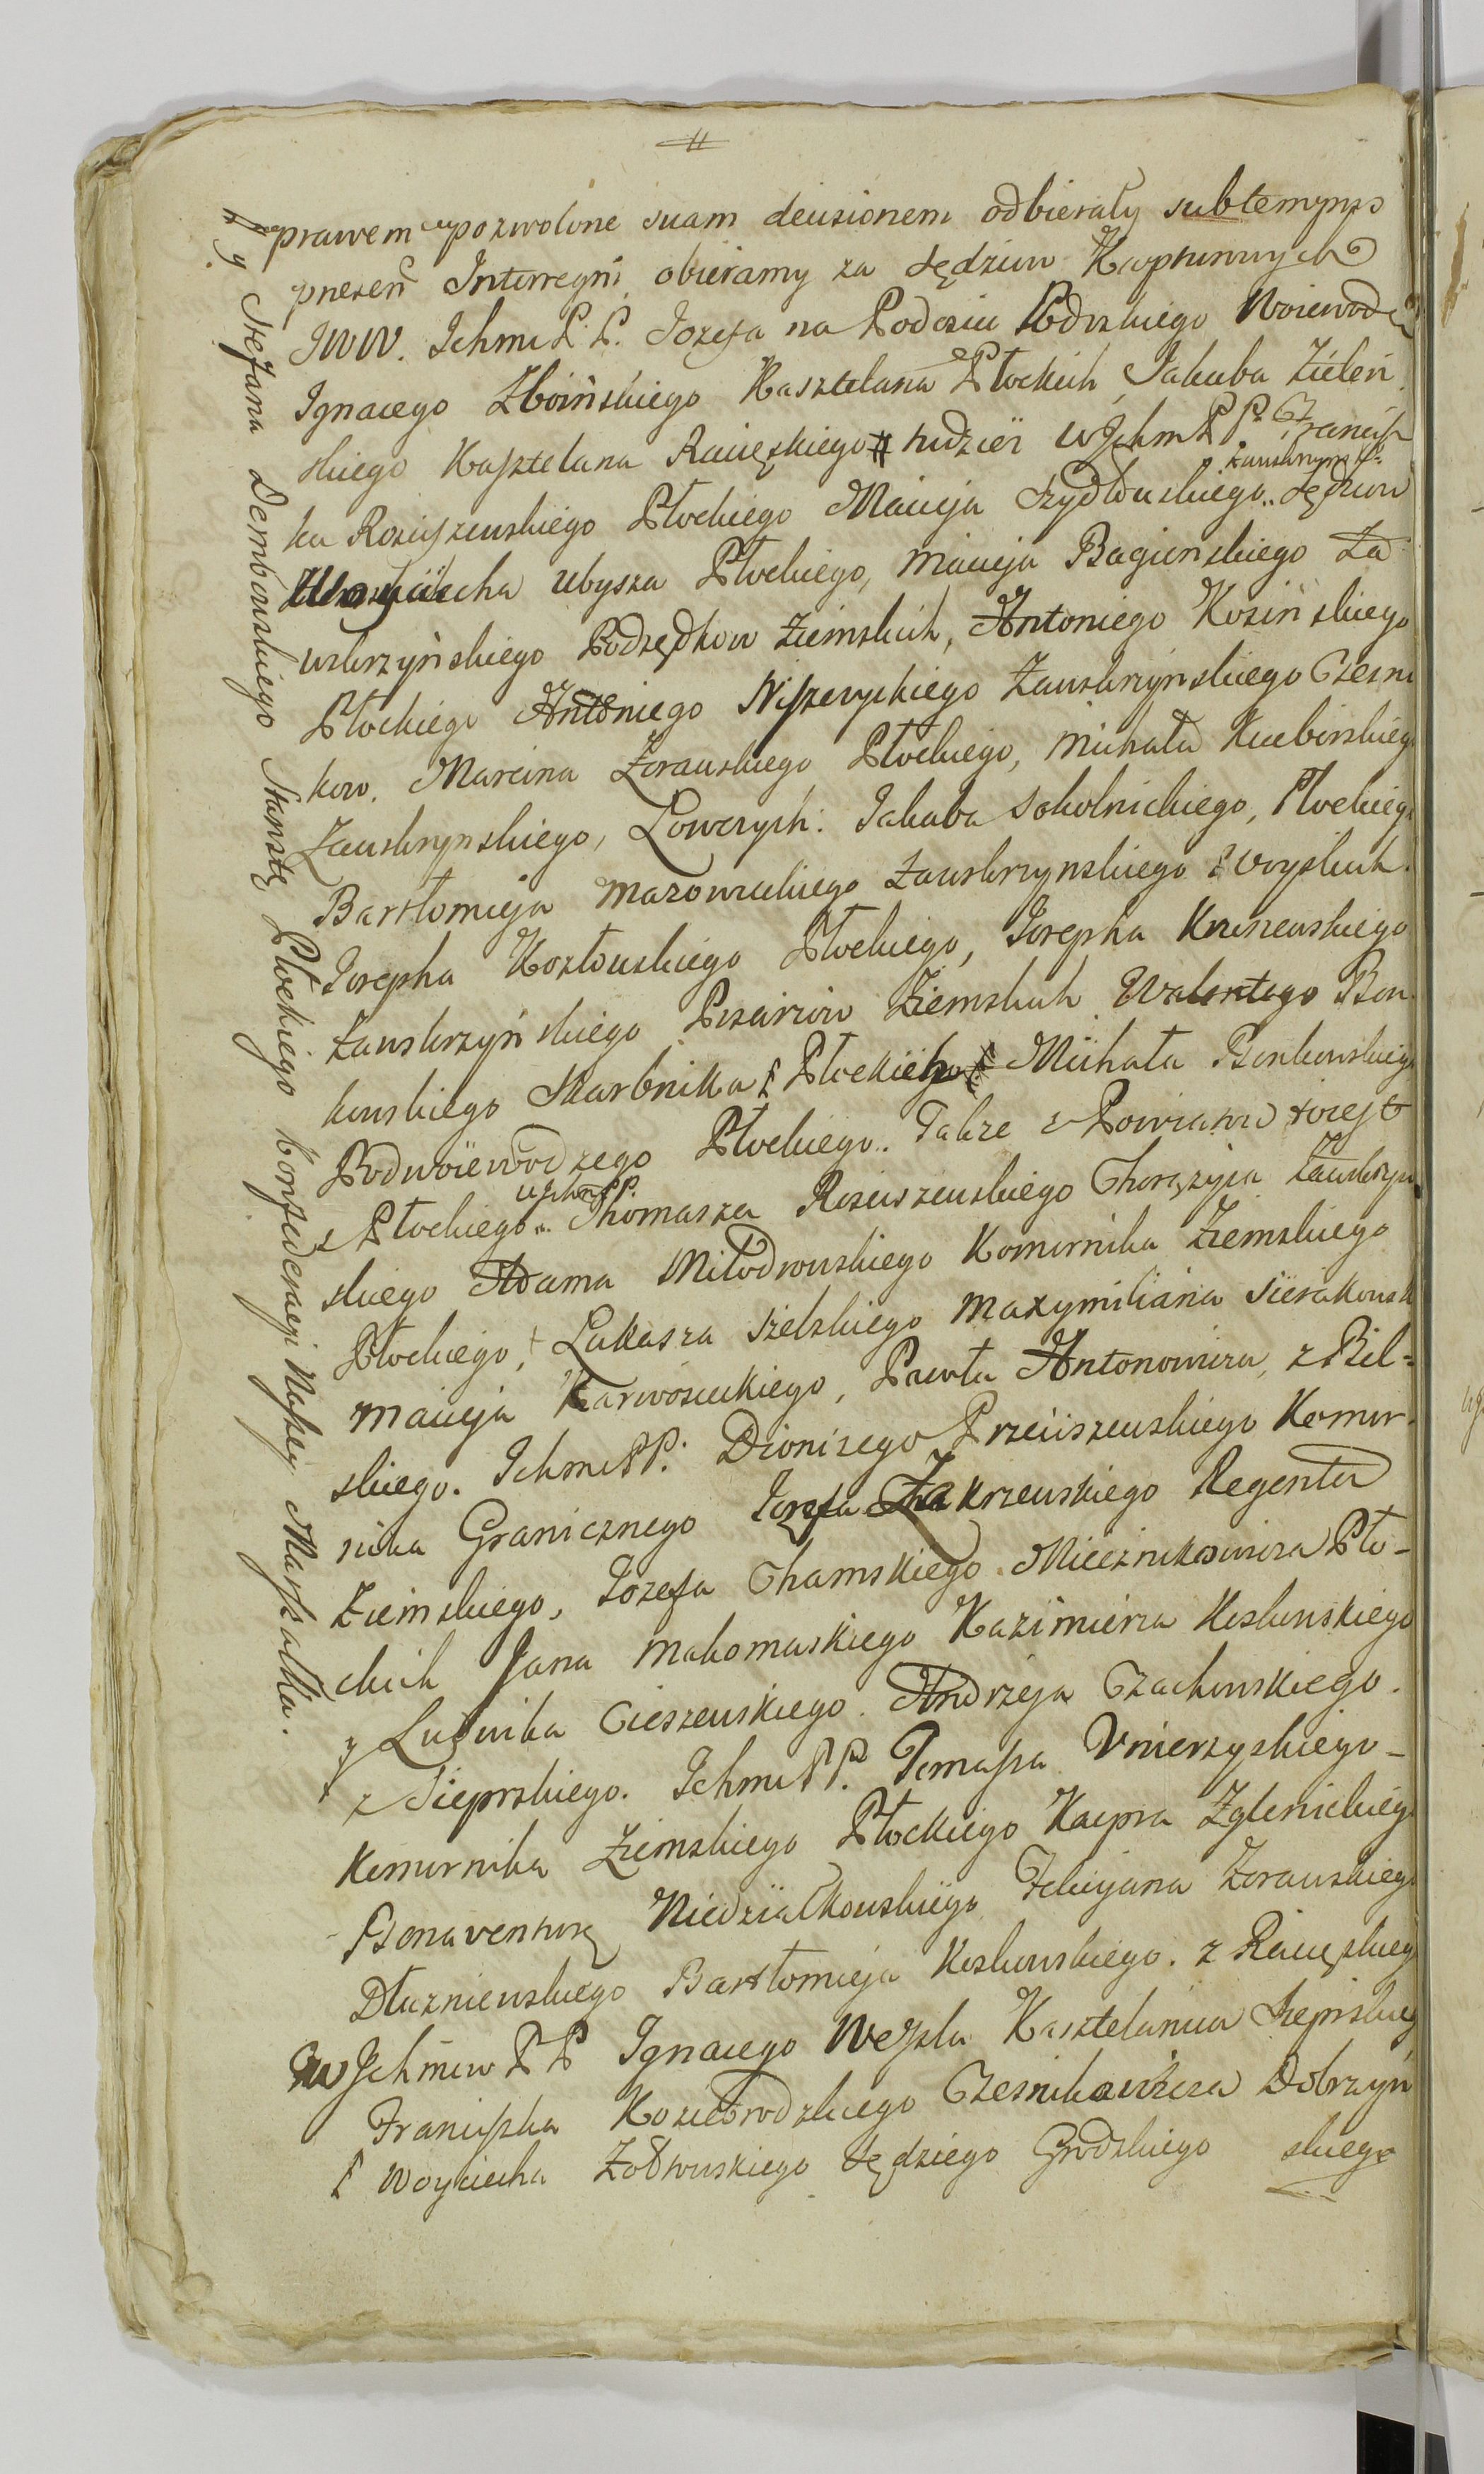 prawem pozwolone suam decisionem odbierały sub tempus
presens Interregni obieramy za Sędziow Kapturowych
JWW. Ichmc P. P. Jozefa na Podosiu Podoskiego Woiewodę
Ignacego Zboińskiego Kasztelana Płockich, Jakuba Zieleń
skiego Kasztelana Racięskiego # tudzież WJchm P P. Francisz
ka Rosciszewskiego Płockiego Macieja Szydłowskiego zawskrzynskie: Sędziow
Woyciecha Ubysza Płockiego, Macieja Bagienskiego Za
wskrzyńskiego Podsędkow Ziemskich, Antoniego Kosińskiego
Płockiego Antoniego Niszczyckiego Zawskrzyńskiego Czesni
kow. Marcina Zorawskiego Płockiego, Michała Kucborskiego
Zawskrynskiego, Łowczych. Jakuba Sokolnickiego, Płockiego
Bartłomieja Mazowieckiego Zawskrzynskiego Woyskich.
Jozepha Kozłowskiego Płockiego, Jozepha Kruszewskiego
Zawskrzyńskiego Pisarzow Ziemskich Walentego Bon
kowskiego Skarbnika Płockiego Michała Bonkowskiego
Podwoiewodzego Płockiego. Także z Powiatow to iest
z Płockiego WJchm PP. Thomasza Rosciszewskiego Chorążyca Zawskrzyn
skiego Adama Miłodrowskiego Komornika Ziemskiego
Płockiego, Łukasza Szelskiego Maxymiliana Sierakowsk
Macieja Karwosieckiego, Pawła Antonowicza, z Biel-
skiego. Ichmc PP. Dionizego Przeciszewskiego Komor-
nika Granicznego Jozefa Zakrzewskiego Regenta
Ziemskiego, Jozefa Chamskiego Miecznikowicza Pło-
ckich Jana Makomaskiego Kazimierza Koskowskiego
y Ludwika Cieszewskiego. Andrzeja Czachowskiego.
z Sieprskiego. Ichmc PP. Tomasza Unierzyskiego
Komornika Ziemskiego Płockiego Kacpra Zglenickiego
Bonawenturę Niedziałkowskiego Felicyana Zorawskiego
Dłuzniewskiego Bartłomieja Koskowskiego. z Raciąskiego
W Jchmcw P P Ignacego Wessla Kasztelanica Sieprskieg
Franciszka Koziebrodzkiego Czesnikowicza Dobrzyń
Woyciecha Zołtowskiego Sędziego Grodzkiego skiego
# y Stefana Dembowskiego Starostę Płockiego konfederacyi Naszey Marszałka.